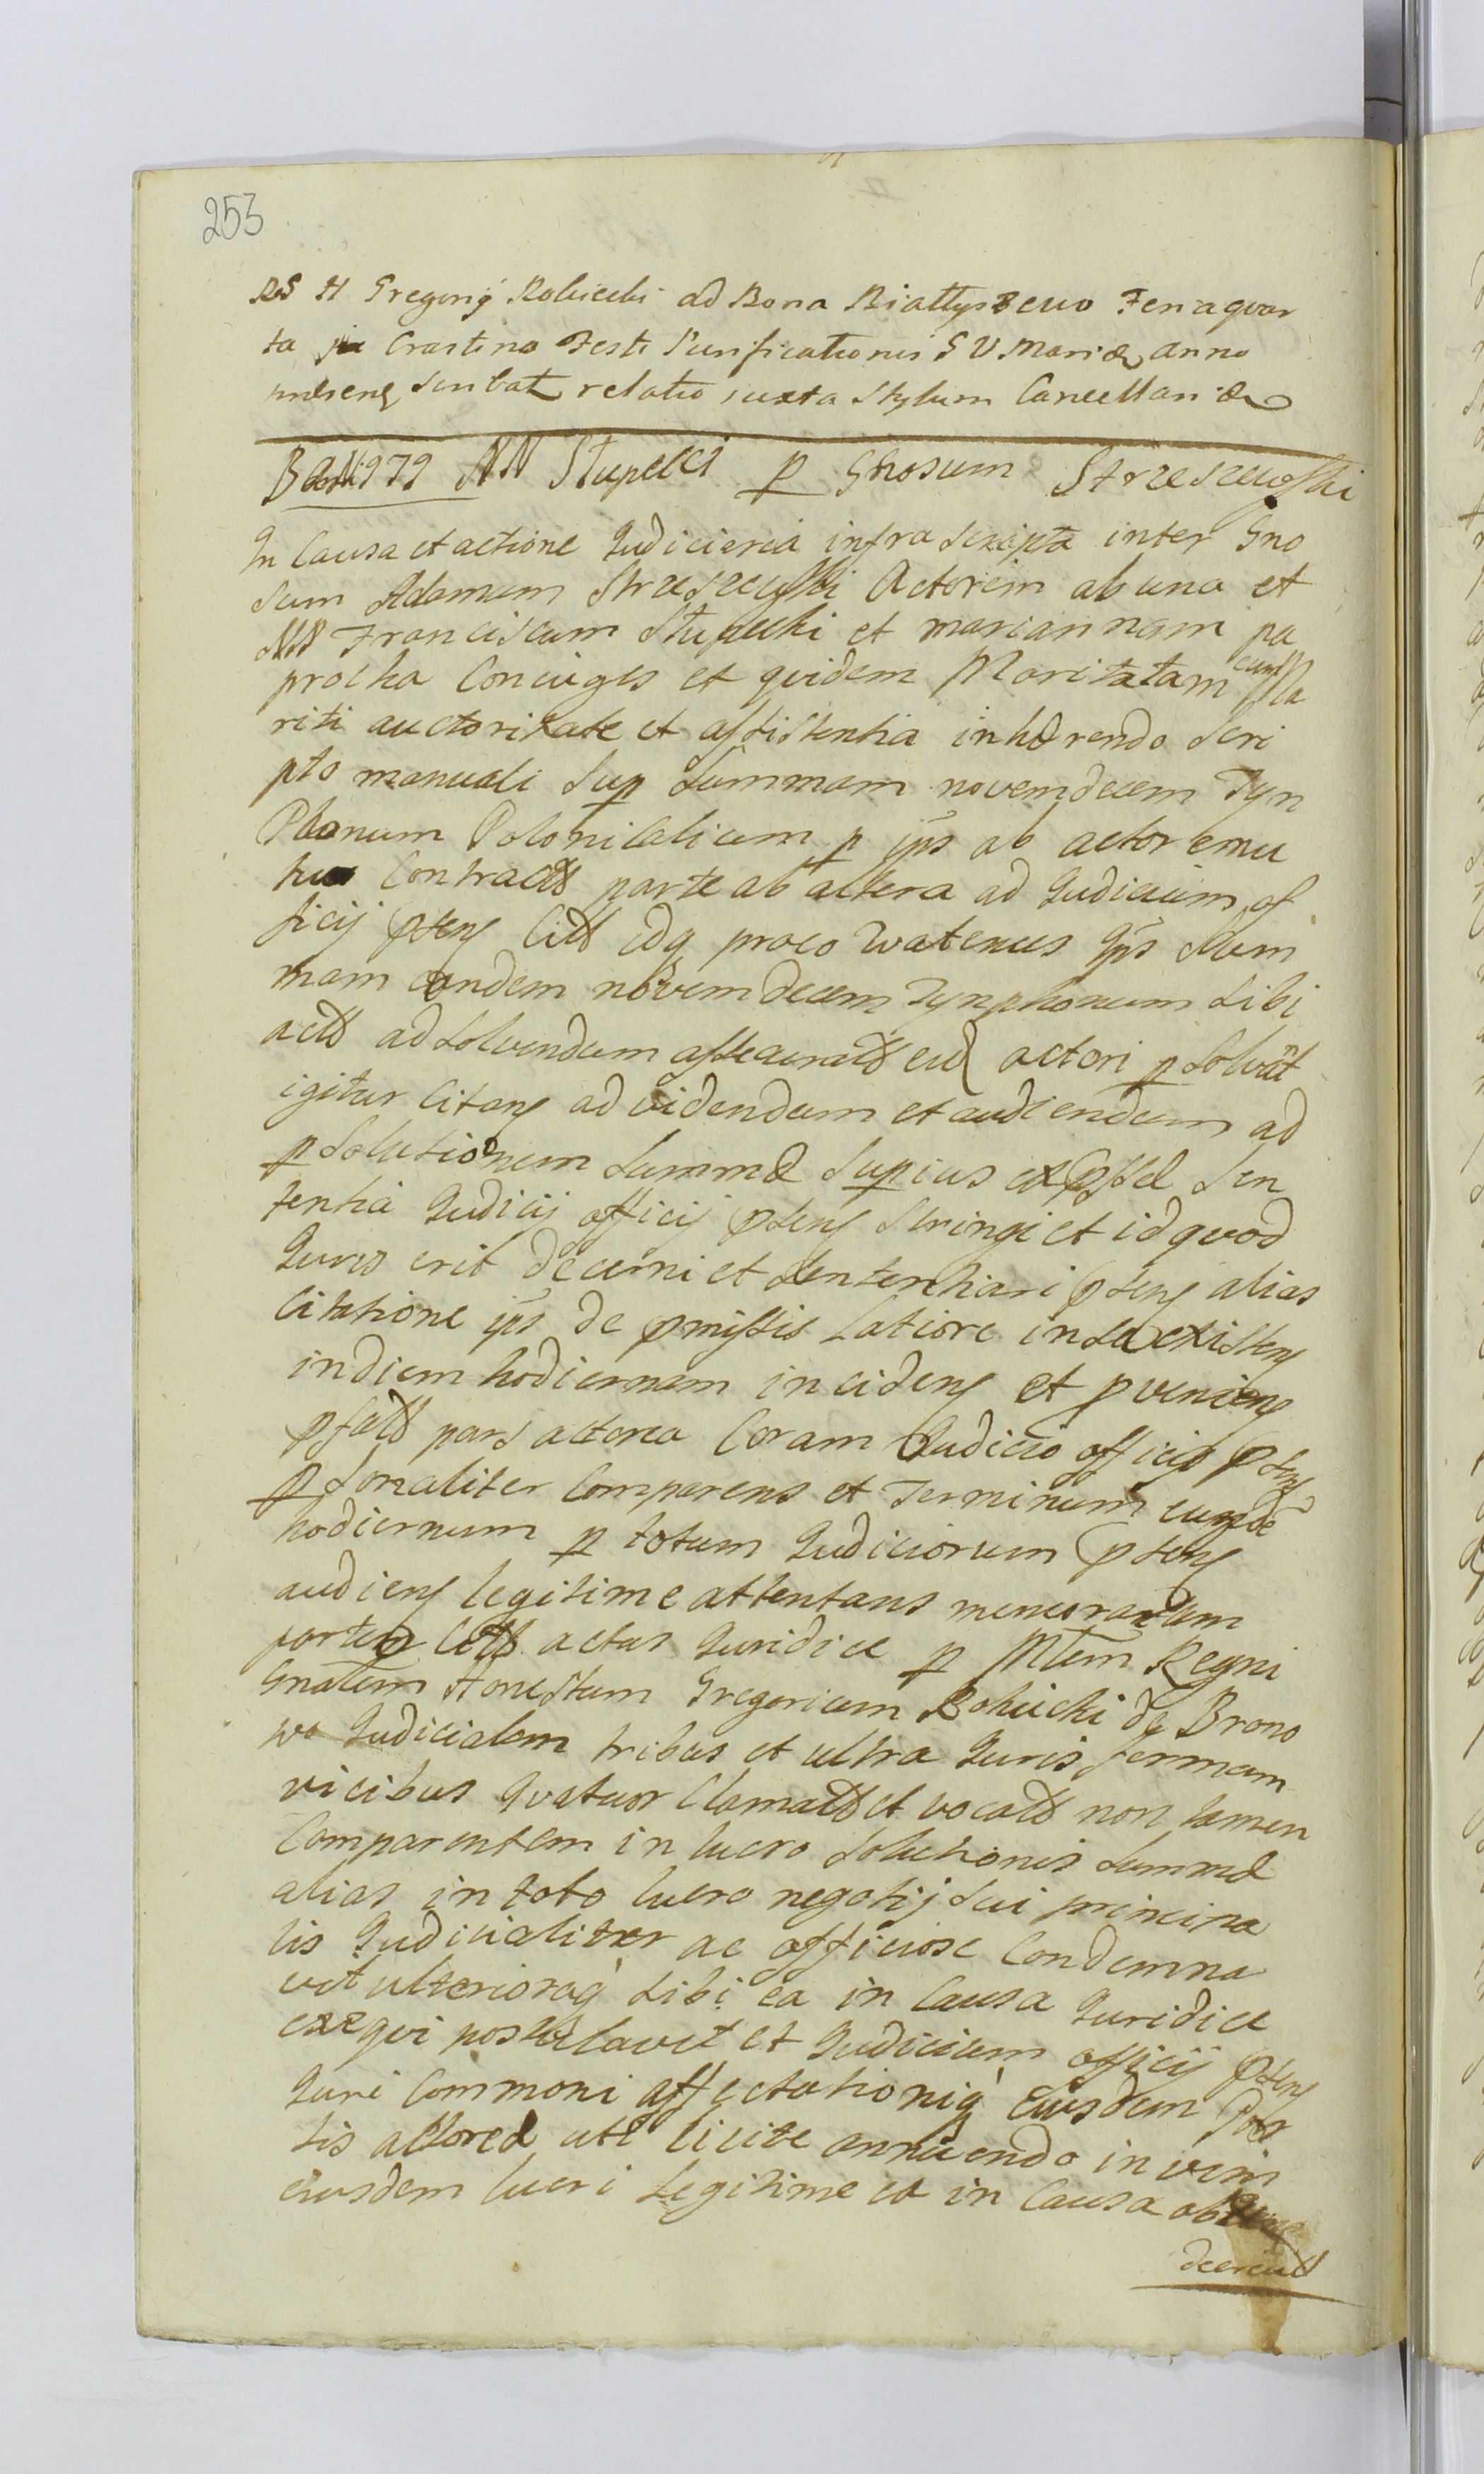 253
RS H Gregorij Rohicchi ad Bona Biattyszewo Feria quar
ta in Crastino Festi Purificationis S V Mariæ anno
scribat relatio iuxta Stylum Cancellariæ
979 NN Stupecci p Gnosum Strzeszewski
In Causa et actione Judiciaria infra scripta inter Gno
sum Adamum Strzeszewski Actorem ab una et
NN Franciscum Stupecki et mariannam pa
procka Coniuges et quidem Maritatam cum Ma
riti auctoritate et assistentia inhærendo Scri
pto manuali Sup Summam novemdecem Tyn
Phonum Polonicalium p ips ab actor emu
Contract parte ab altera ad Judicium of
ficij pteng Citt idq proco Watenus ips Sum
mam eandem novemdecem Tynphonum sibi
actt ad solvendum assecuratt eid actori p solvat
igitur Citang ad videndum et audiendum ad
p solutionem Summæ Supius expssæ Sen
tentia Judicij officij pteng Stringi et id quod
Juris erit decerni et sententiari pteng alias
Citatione ips de pmissis Latiore in se existeng
in diem hodiernam incideng et pvenieng
pfatt pars actorea Coram Judicio officij pteng
p sonaliter Comparens et Terminum eumde
hodiernum p totum Judiciorum pteng
audieng legitime attentans memoratam
partem Citt actus Juridice p Mtem Regni
Gnalem Honestum Gregorium Rohicki de Brono
wo Judicialem tribus et ultra Juris formam
vicibus quatuor Clamatt et vocatt non tamen
Comparentem in lucro Solutionis Summæ
alias in toto lucro negotij sui principa
lis Judicialiter ac officiose Condemna
vit ulterioraq sibi ea in Causa Juridice
exequi postulavit et Judicium officij pteng
Juri Commoni affectationiq Eiusdem Par
tis actoreæ uti licite annuendo in vim
eiusdem lucri Legitime ea in Causa
decrevit